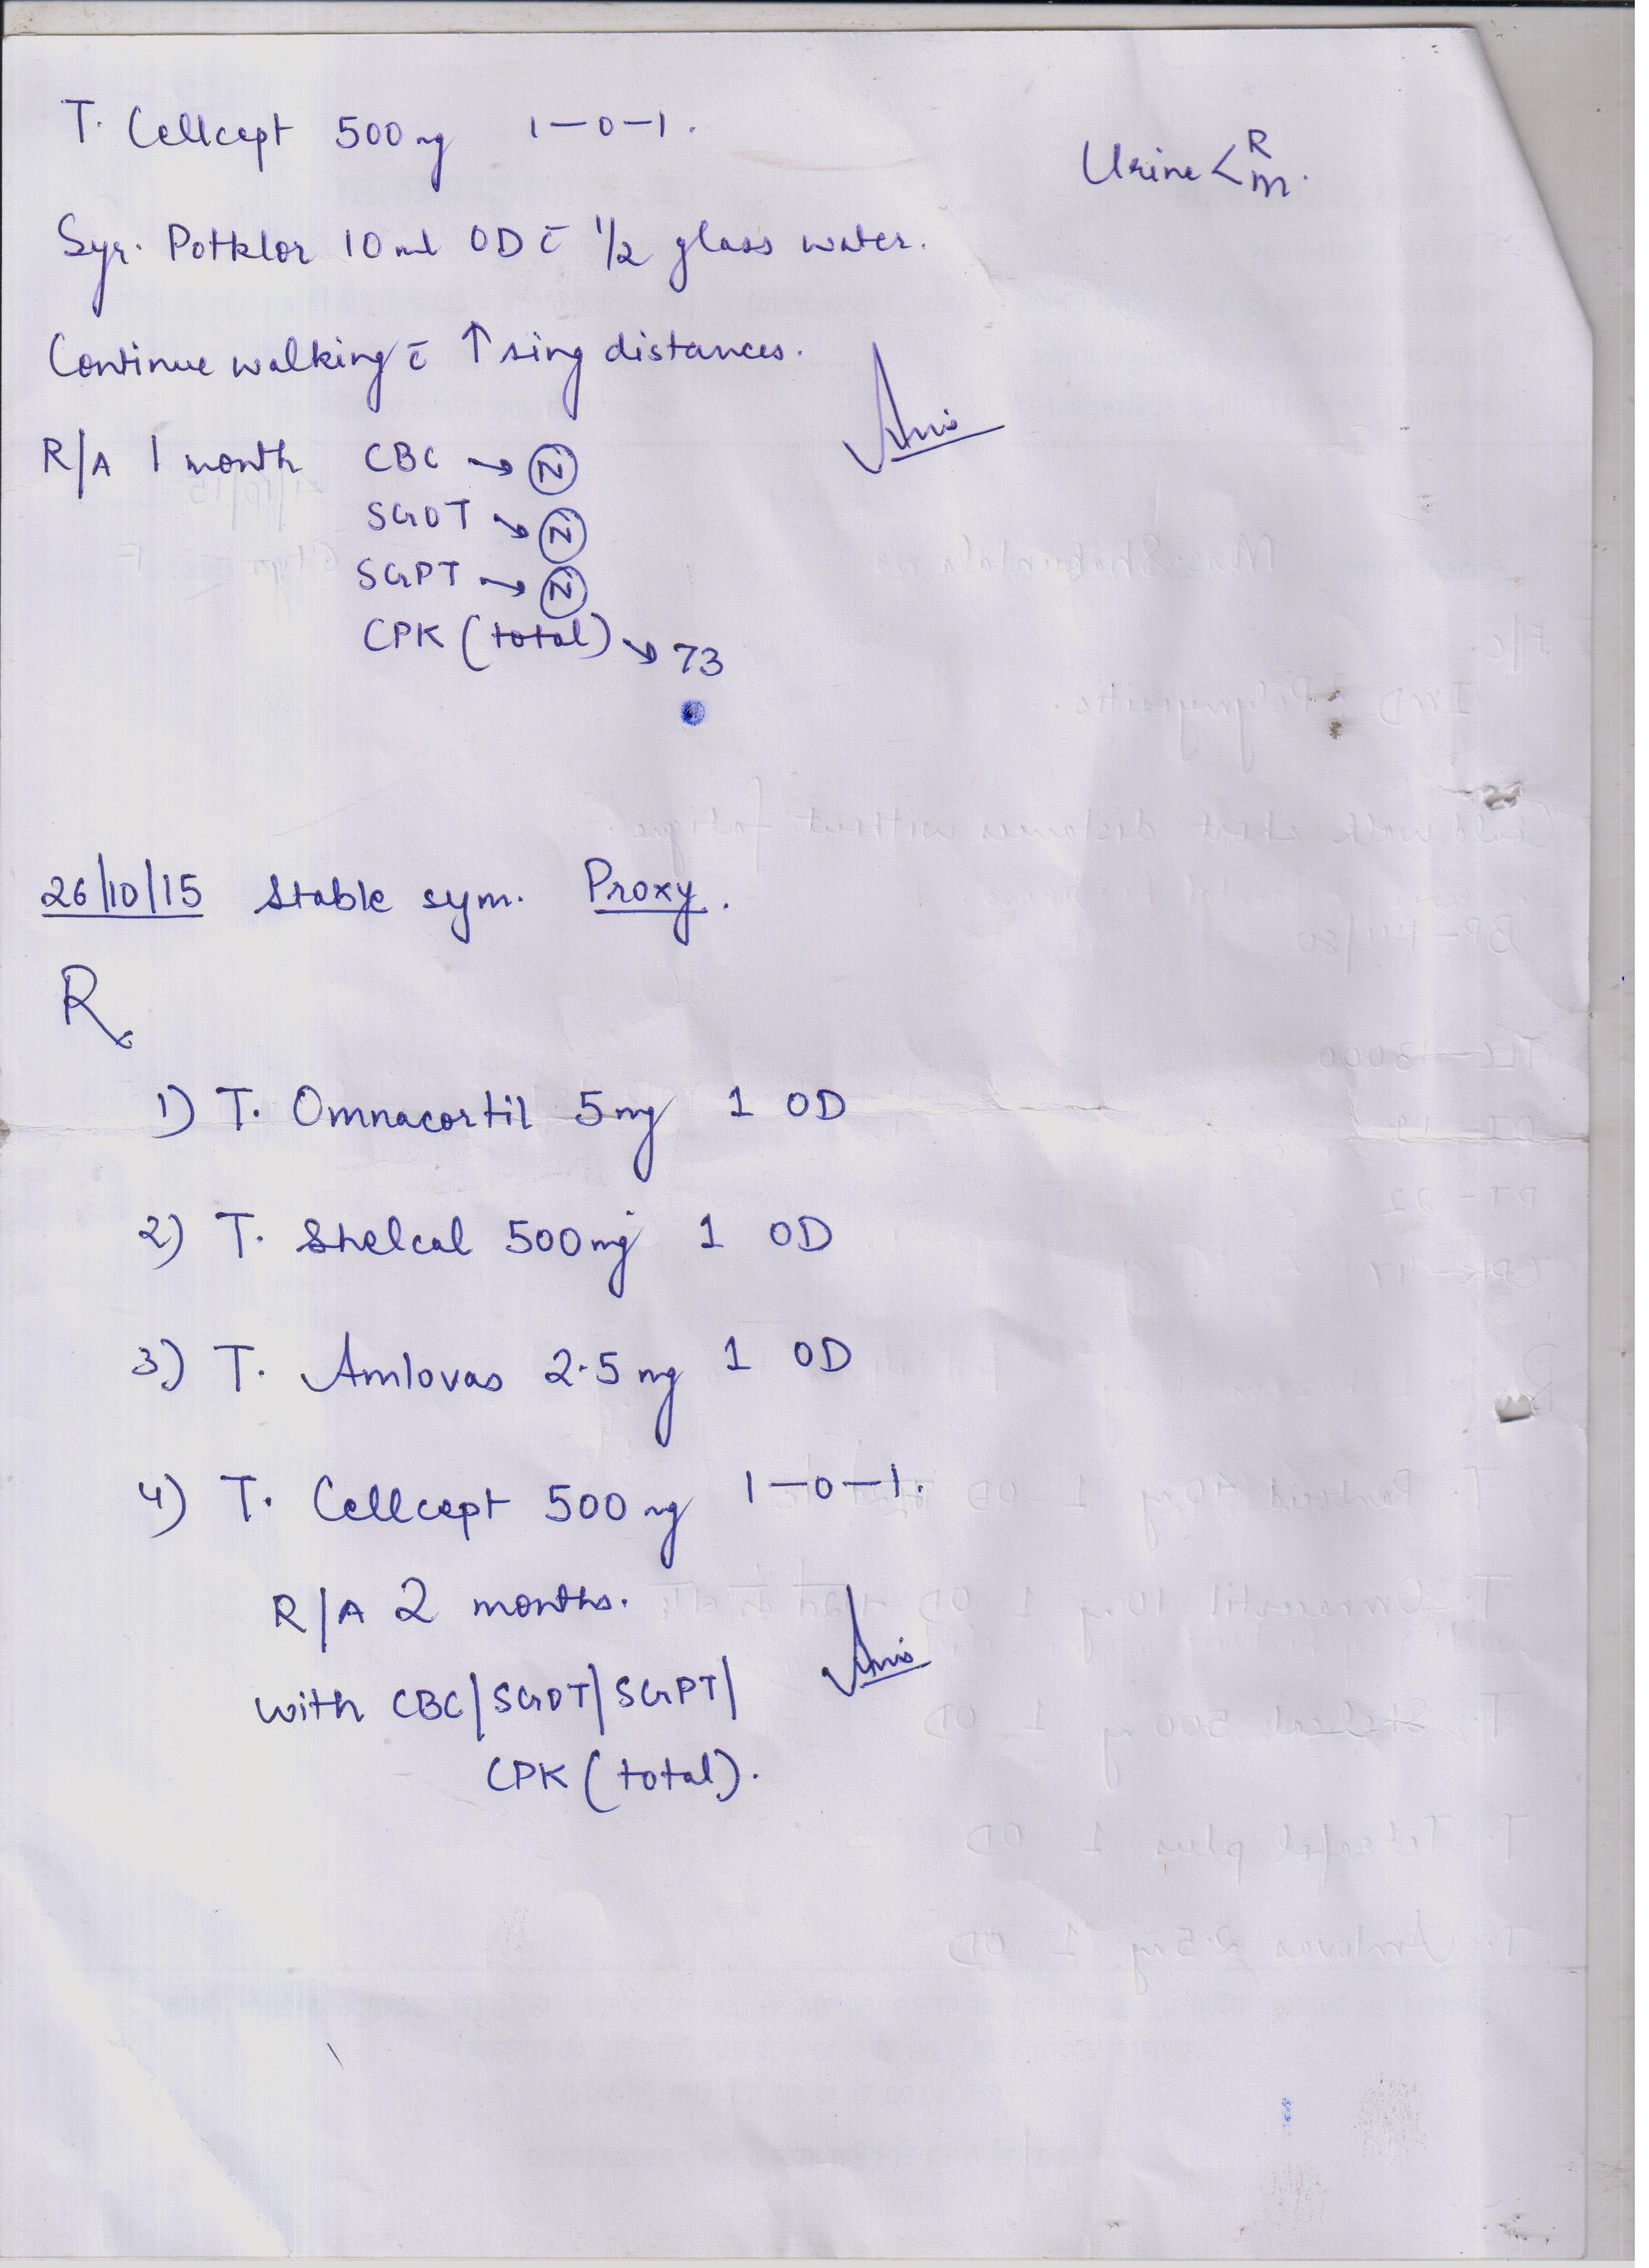 T. Cellcept 500mg 1–0–1.
Urine < R
m.
Syr. Potklor 10ml OD c̄ 1/2 glass water.
Continue walking c̄ ↑sing distances.
R/A 1 month CBC → Ⓝ
SGOT → Ⓝ
SGPT → Ⓝ
CPK (total) → 73
26/10/15 Stable sym. Proxy.
Rx
1) T. Omnacortil 5mg 1 OD
2) T. Shelcal 500mg 1 OD
3) T. Amlovas 2.5mg 1 OD
4) T. Cellcept 500mg 1–0–1.
R/A 2 months.
with CBC/SGOT/SGPT/
CPK (total).